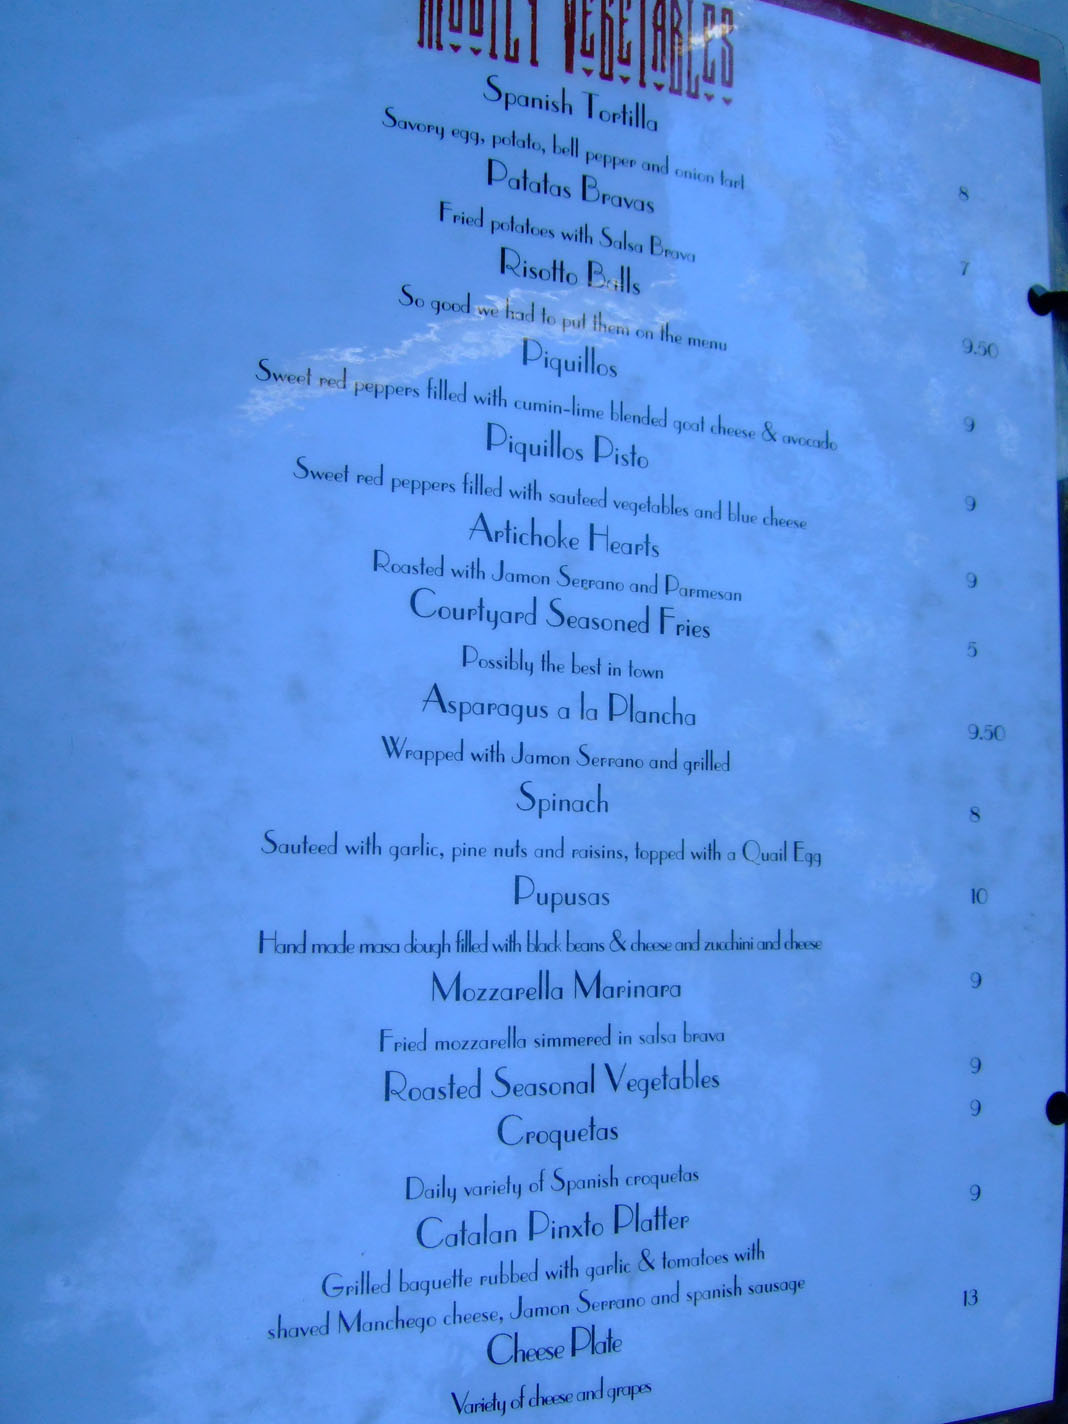 Mostly Vegetables
Spanish Tortilla
Savory egg, potato, bell pepper and onion tart 8
Patatas Bravas
Fried potatoes with Salsa Brava 7
Risotto Balls
So good we had to put them on the menu 9.50
Piquillos
Sweet red peppers filled with cumin-lime blended goat cheese & avocado 9
Piquillos Pisto
Sweet red peppers filled with sauteed vegetables and blue cheese 9
Artichoke Hearts
Roasted with Jamon Serrano and Parmesan 9
Courtyard Seasoned Fries 5
Possibly the best in town
Asparagus a la Plancha 9.50
Wrapped with Jamon Serrano and grilled
Spinach 8
Sauteed with garlic, pine nuts and raisins, topped with a Quail Egg
Pupusas 10
Hand made masa dough filled with black beans & cheese and zucchini and cheese
Mozzarella Marinara 9
Fried mozzarella simmered in salsa brava
Roasted Seasonal Vegetables 9
Croquetas 9
Daily variety of Spanish croquetas
Catalan Pinxto Platter 9
Grilled baguette rubbed with garlic & tomatoes with
shaved Manchego cheese, Jamon Serrano and spanish sausage
Cheese Plate 13
Variety of cheese and grapes